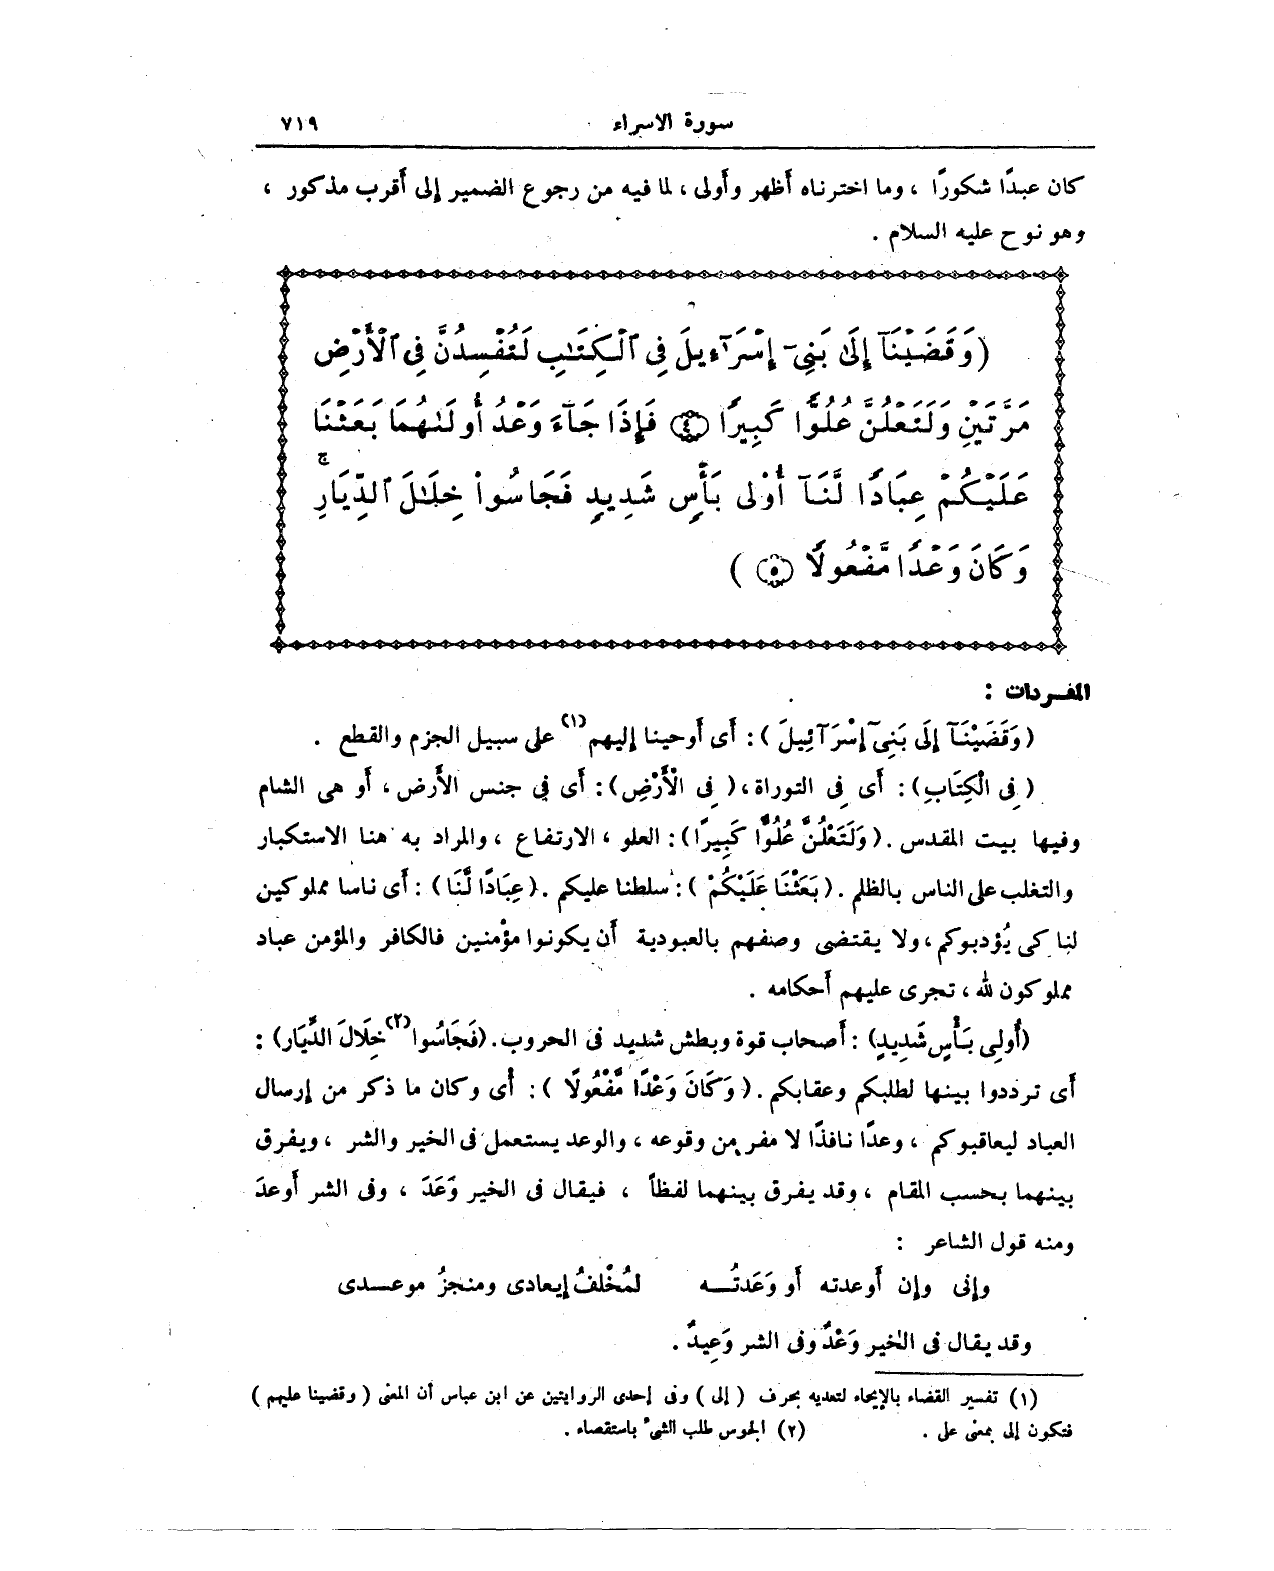 سورة الاسراء ٧١٩
كان عبدًا شكورًا ، وما اخترناه أظهر وأولى ، لما فيه من رجوع الضمير إلى أقرب مذكور ،
وهو نوح عليه السلام .
(وَقَضَيْنَآ إِلَىٰ بَنِىٓ إِسْرَآءِيلَ فِى ٱلْكِتَـٰبِ لَتُفْسِدُنَّ فِى ٱلْأَرْضِ
مَرَّتَيْنِ وَلَتَعْلُنَّ عُلُوًّا كَبِيرًا ﴿٤﴾ فَإِذَا جَآءَ وَعْدُ أُولَىٰهُمَا بَعَثْنَا
عَلَيْكُمْ عِبَادًا لَّنَآ أُوْلِى بَأْسٍ شَدِيدٍ فَجَاسُوا۟ خِلَـٰلَ ٱلدِّيَارِ ۚ
وَكَانَ وَعْدًا مَّفْعُولًا ﴿٥﴾ )
المفردات :
(وَقَضَيْنَآ إِلَى بَنِىٓ إِسْرَآئِيلَ ) : أى أوحينا إليهم (١) على سبيل الجزم والقطع .
(فِى الْكِتَابِ) : أى فى التوراة ، ( فِى الْأَرْضِ) : أى فى جنس الأرض ، أو هى الشام
وفيها بيت المقدس . ( وَلَتَعْلُنَّ عُلُوًّا كَبِيرًا ) : العلو ، الارتفاع ، والمراد به هنا الاستكبار
والتغلب على الناس بالظلم . ( بَعَثْنَا عَلَيْكُمْ ) : سلطنا عليكم . ( عِبَادًا لَّنَا ) : أى ناسا مملوكين
لنا كى يُؤدبوكم ، ولا يقتضى وصفهم بالعبودية أن يكونوا مؤْمنين فالكافر والمؤمن عباد
مملوكون لله ، تجرى عليهم أحكامه .
(أُولِى بَأْسٍ شَدِيدٍ) : أصحاب قوة وبطش شديد فى الحروب . (فَجَاسُوا (٢) خِلَالَ الدِّيَارِ) :
أى ترددوا بينها لطلبكم وعقابكم . ( وَكَانَ وَعْدًا مَّفْعُولًا ) : أى وكان ما ذكر من إرسال
العباد ليعاقبوكم ، وعدًا نافذًا لا مفر من وقوعه ، والوعد يستعمل فى الخير والشر ، ويفرق
بينهما بحسب المقام ، وقد يفرق بينهما لفظاً ، فيقال فى الخير وَعَدَ ، وفى الشر أوعدَ
ومنه قول الشاعر :
وإنى وإن أوعدته أو وَعَدتُـــه لمُخْلفُ إيعادى ومنجزُ موعـــدى
وقد يقال فى الخير وَعْدٌ وفى الشر وَعِيدٌ .
(١) تفسير القضاء بالإيحاء لتعديه بحرف ( إلى ) وفى إحدى الروايتين عن ابن عباس أن المعنى ( وقضينا عليهم )
فتكون إلى بمعنى على . (٢) الجوس طلب الشىء باستقصاء .